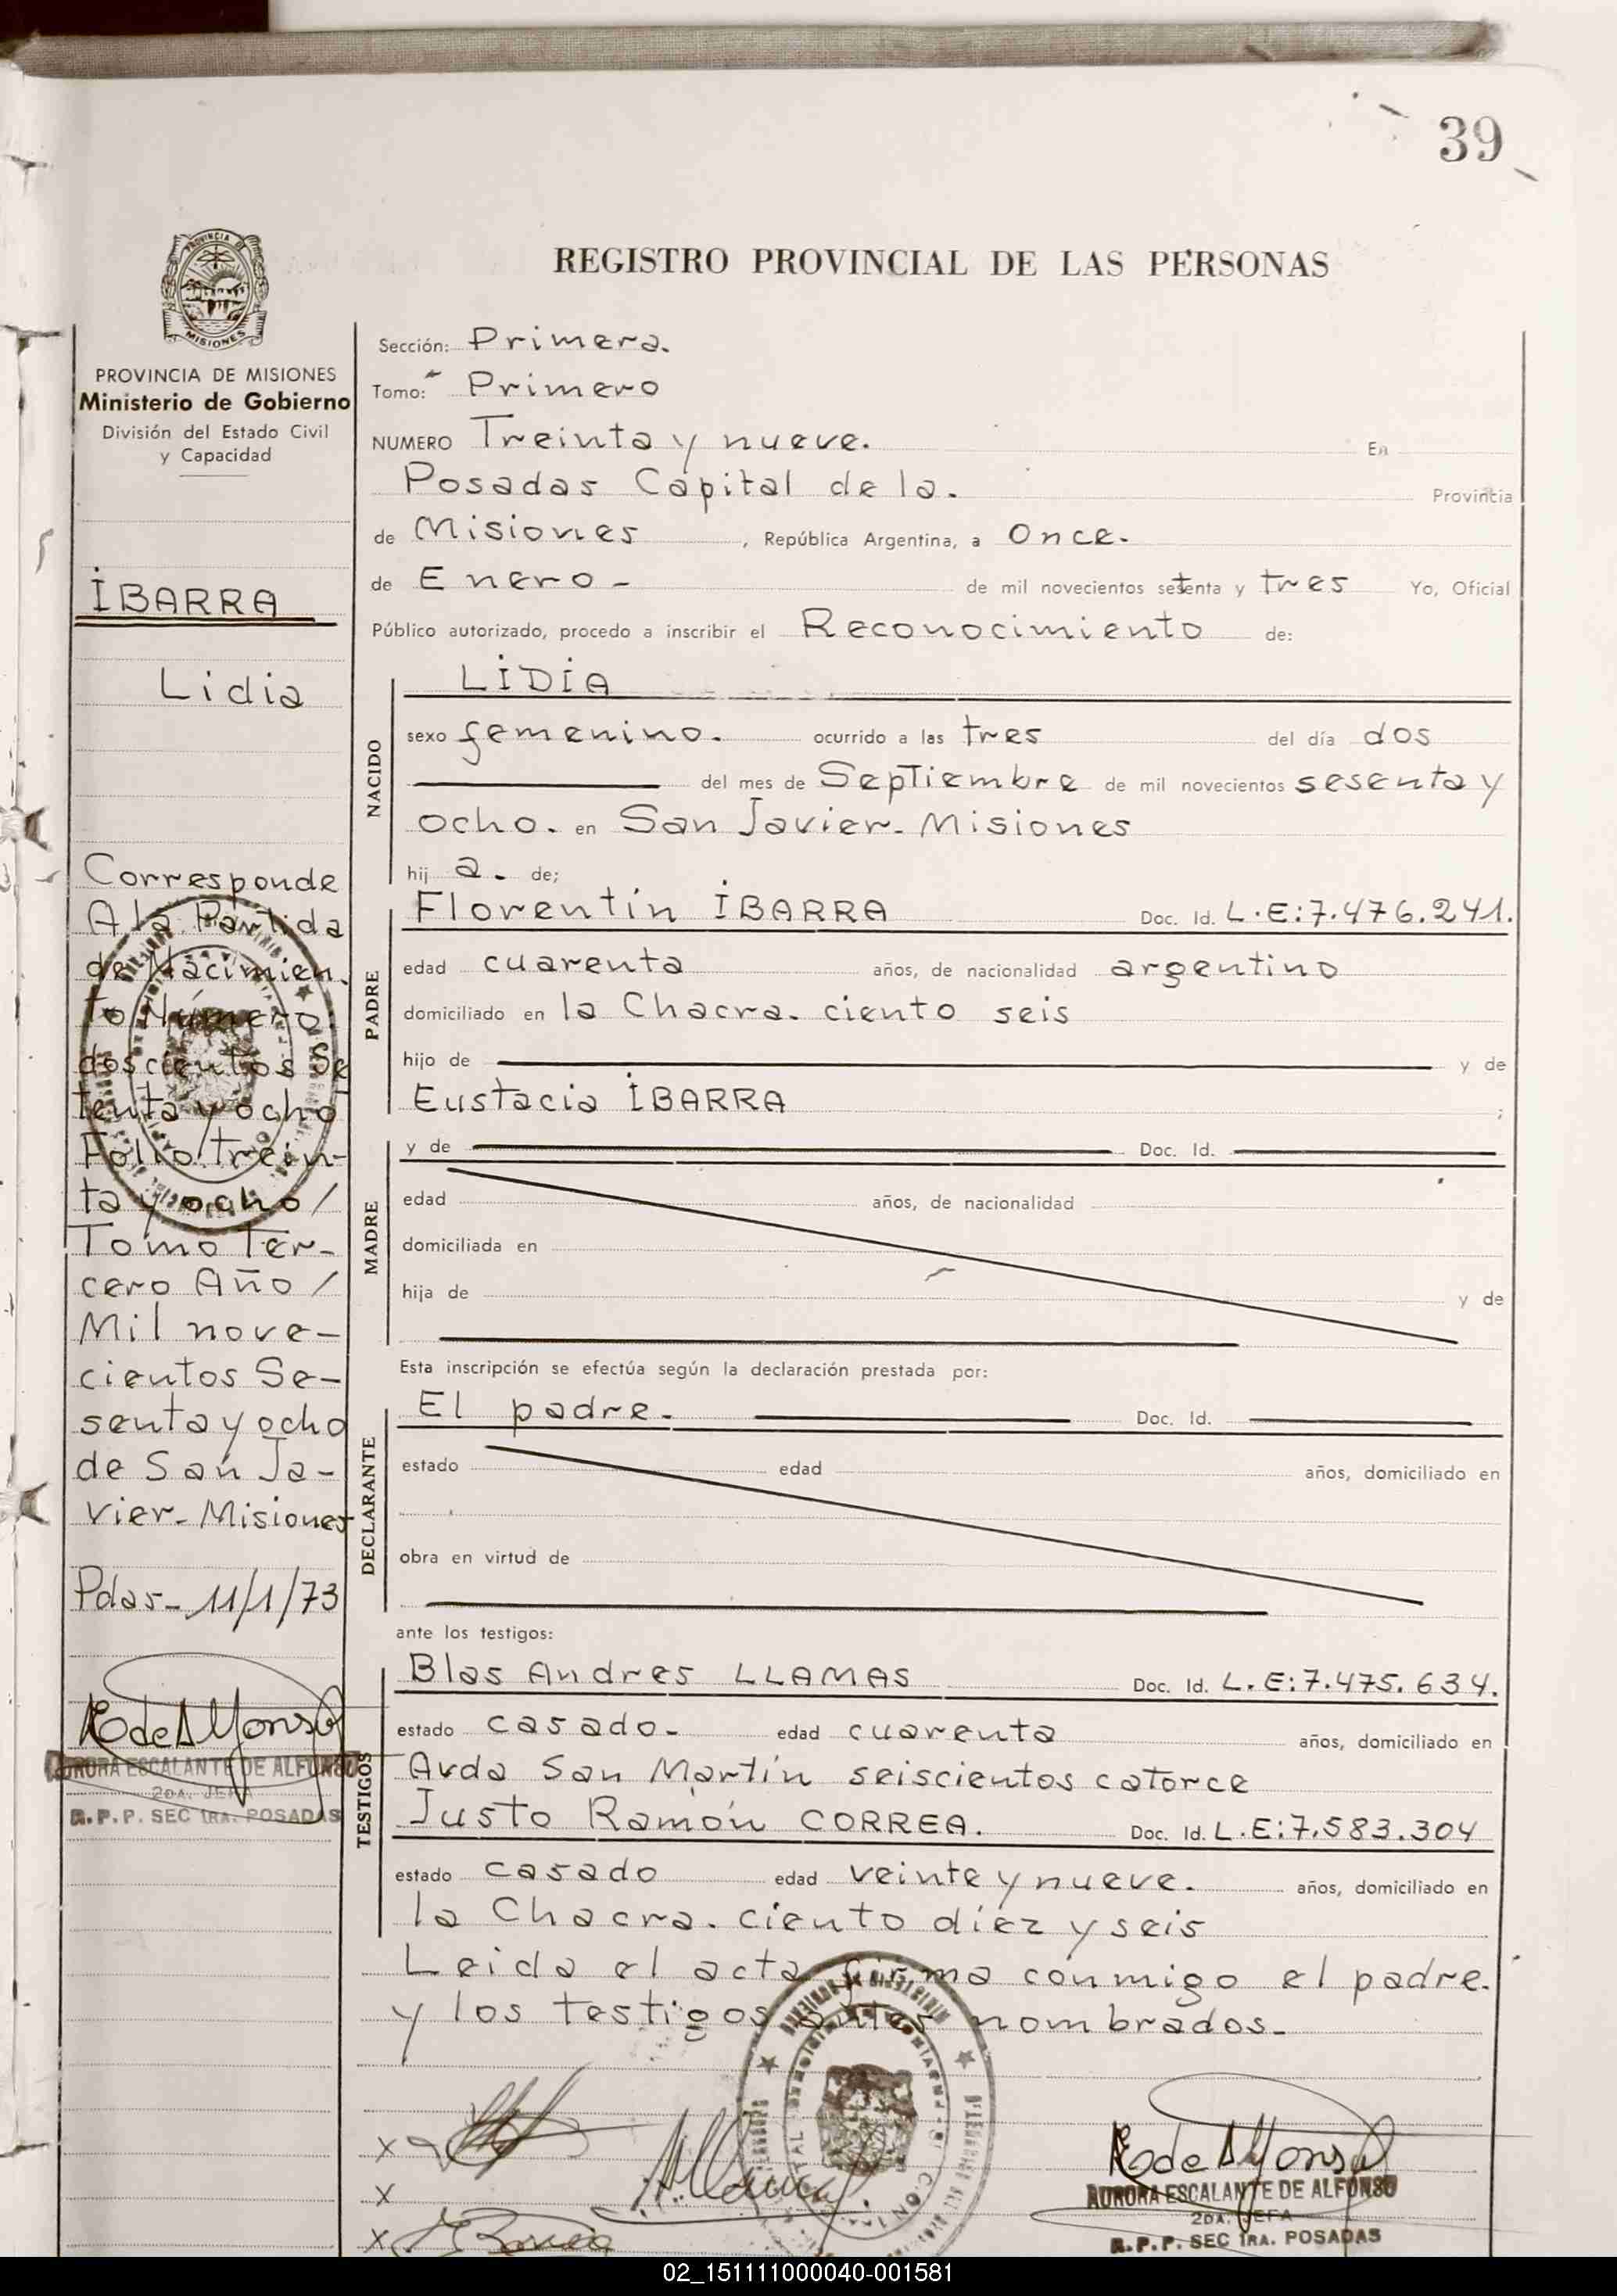 39
REGISTRO PROVINCIAL DE LAS PERSONAS
PROVINCIA DE
MISIONES
PROVINCIA DE MISIONES
Ministerio de Gobierno
División del Estado Civil
y Capacidad
IBARRA
Lidia
Corresponde
A la Partida
de Nacimien.
to Número
doscientos Se
tenta y ocho
Folio trein-
ta y ocho/
Tomo Ter-
cero Año /
Mil nove-
cientos Se-
senta y ocho
de San Ja-
vier- Misiones
Pdas- 11/1/73
AURORA ESCALANTE DE ALFONSO
2DA. JEFA
R.P.P. SEC 1RA. POSADAS
Sección: Primera.
Tomo: Primero
NUMERO Treinta y nueve. En
Posadas Capital de la. Provincia
de Misiones , República Argentina, a Once.
de Enero - de mil novecientos setenta y tres Yo, Oficial
Público autorizado, procedo a inscribir el Reconocimiento de:
NACIDO
LIDIA
sexo femenino. ocurrido a las tres del día dos
del mes de Septiembre de mil novecientos sesenta y
ocho. en San Javier- Misiones
hij a. de;
PADRE
Florentín IBARRA Doc. Id. L.E:7.476.241.
edad cuarenta años, de nacionalidad argentino
domiciliado en la Chacra. ciento seis
hijo de y de
Eustacia IBARRA ;
MADRE
y de Doc. Id.
edad años, de nacionalidad
domiciliada en
hija de y de
Esta inscripción se efectúa según la declaración prestada por:
DECLARANTE
El padre. Doc. Id.
estado edad años, domiciliado en
obra en virtud de
ante los testigos:
TESTIGOS
Blas Andres LLAMAS Doc. Id. L.E:7.475.634.
estado casado- edad cuarenta años, domiciliado en
Avda San Martín seiscientos catorce
Justo Ramón CORREA. Doc. Id. L.E:7.583.304
estado casado edad veinte y nueve. años, domiciliado en
la Chacra. ciento díez y seis
Leida el acta firma conmigo el padre.
y los testigos antes nombrados-
x
x
x
AURORA ESCALANTE DE ALFONSO
2DA. JEFA
R.P.P. SEC 1RA. POSADAS
02_151111000040-001581